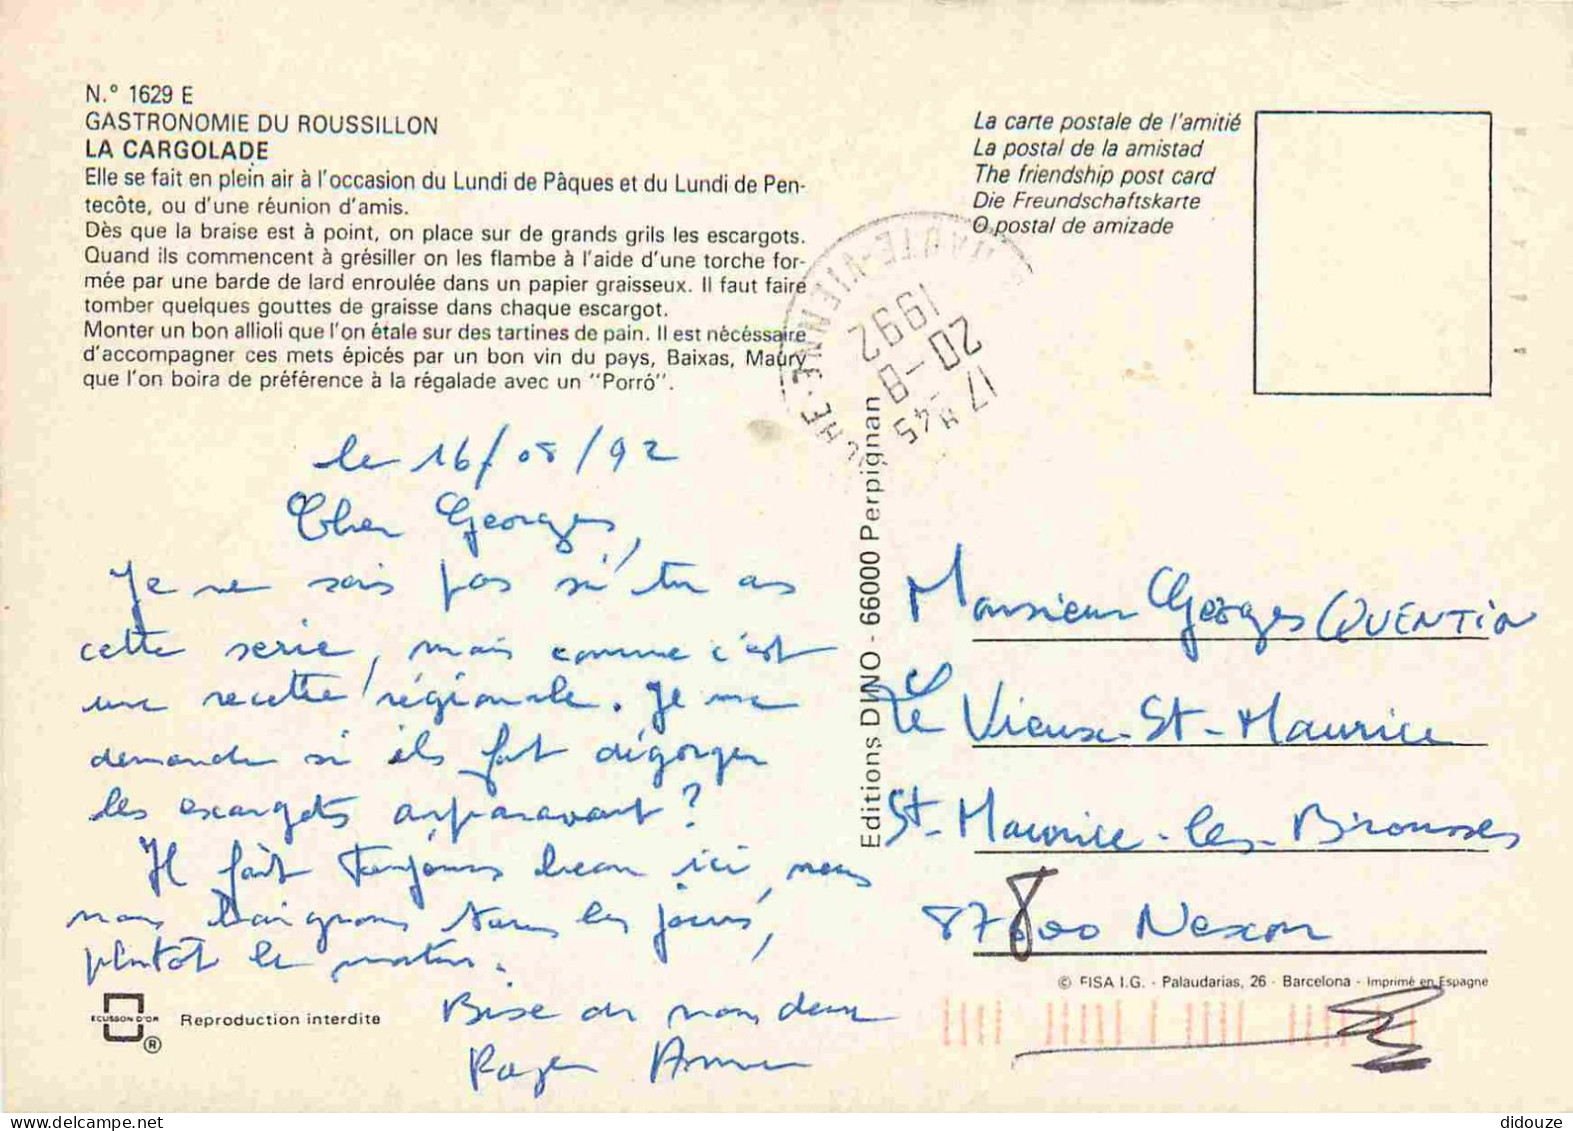 N.° 1629 E
GASTRONOMIE DU ROUSSILLON
LA CARGOLADE
Elle se fait en plein air à l'occasion du Lundi de Pâques et du Lundi de Pen-
tecôte, ou d'une réunion d'amis.
Dès que la braise est à point, on place sur de grands grils les escargots.
Quand ils commencent à grésiller on les flambe à l'aide d'une torche for-
mée par une barde de lard enroulée dans un papier graisseux. Il faut faire
tomber quelques gouttes de graisse dans chaque escargot.
Monter un bon allioli que l'on étale sur des tartines de pain. Il est nécéssaire
d'accompagner ces mets épicés par un bon vin du pays, Baixas, Maury
que l'on boira de préférence à la régalade avec un "Porró".
le 16/08/92
Cher Georges,
Je ne sais pas si tu as
cette serie, mais comme c'est
une recette régionale. Je me
demande si ils font dégorger
les escargots auparavant?
Il fait toujours beau ici, nous
nous baignons tous les jours,
plutot le matin.
Bise de nous deux
Roger Anne
ECUSSON D'OR
®
Reproduction interdite
La carte postale de l'amitié
La postal de la amistad
The friendship post card
Die Freundschaftskarte
O postal de amizade
HAUTE-VIENNE
17 H 45
20-8
1992
Editions DINO - 66000 Perpignan
Monsieur Georges QUENTIN
Le Vieux-St-Maurice
St-Maurice-les-Brousses
87800 Nexon
© FISA I.G. - Palaudarias, 26 - Barcelona - Imprimé en Espagne
didouze